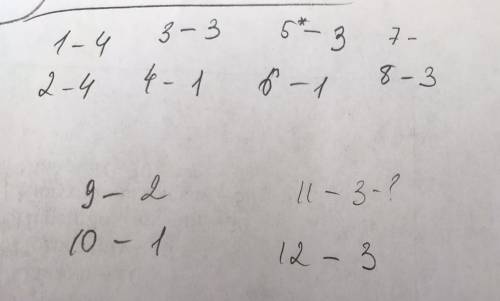 1 - 4 3 - 3 5* - 3 7 -
2 - 4 4 - 1 6 - 1 8 - 3
9 - 2 11 - 3 - ?
10 - 1 12 - 3